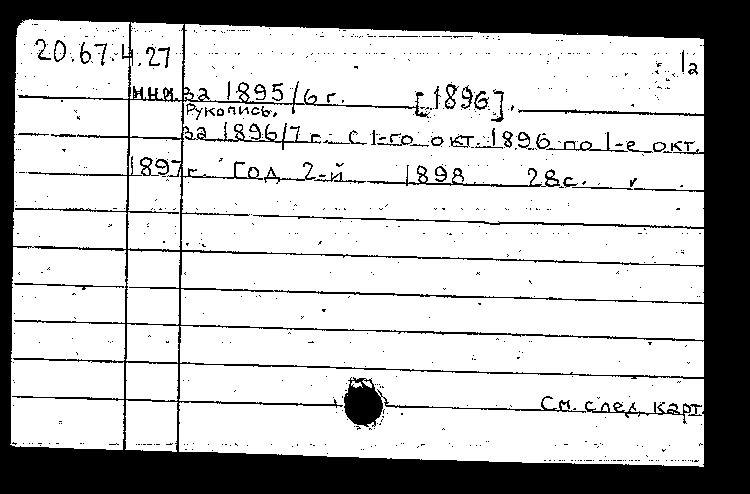 20.67.4.27
1а
н.н.и. за 1895/6 г. [1896].
Рукопись.
за 1896/7 г. с 1-го окт. 1896 по 1-е окт.
1897 г. Год 2-й 1898 28 с. v
См. след. карт.